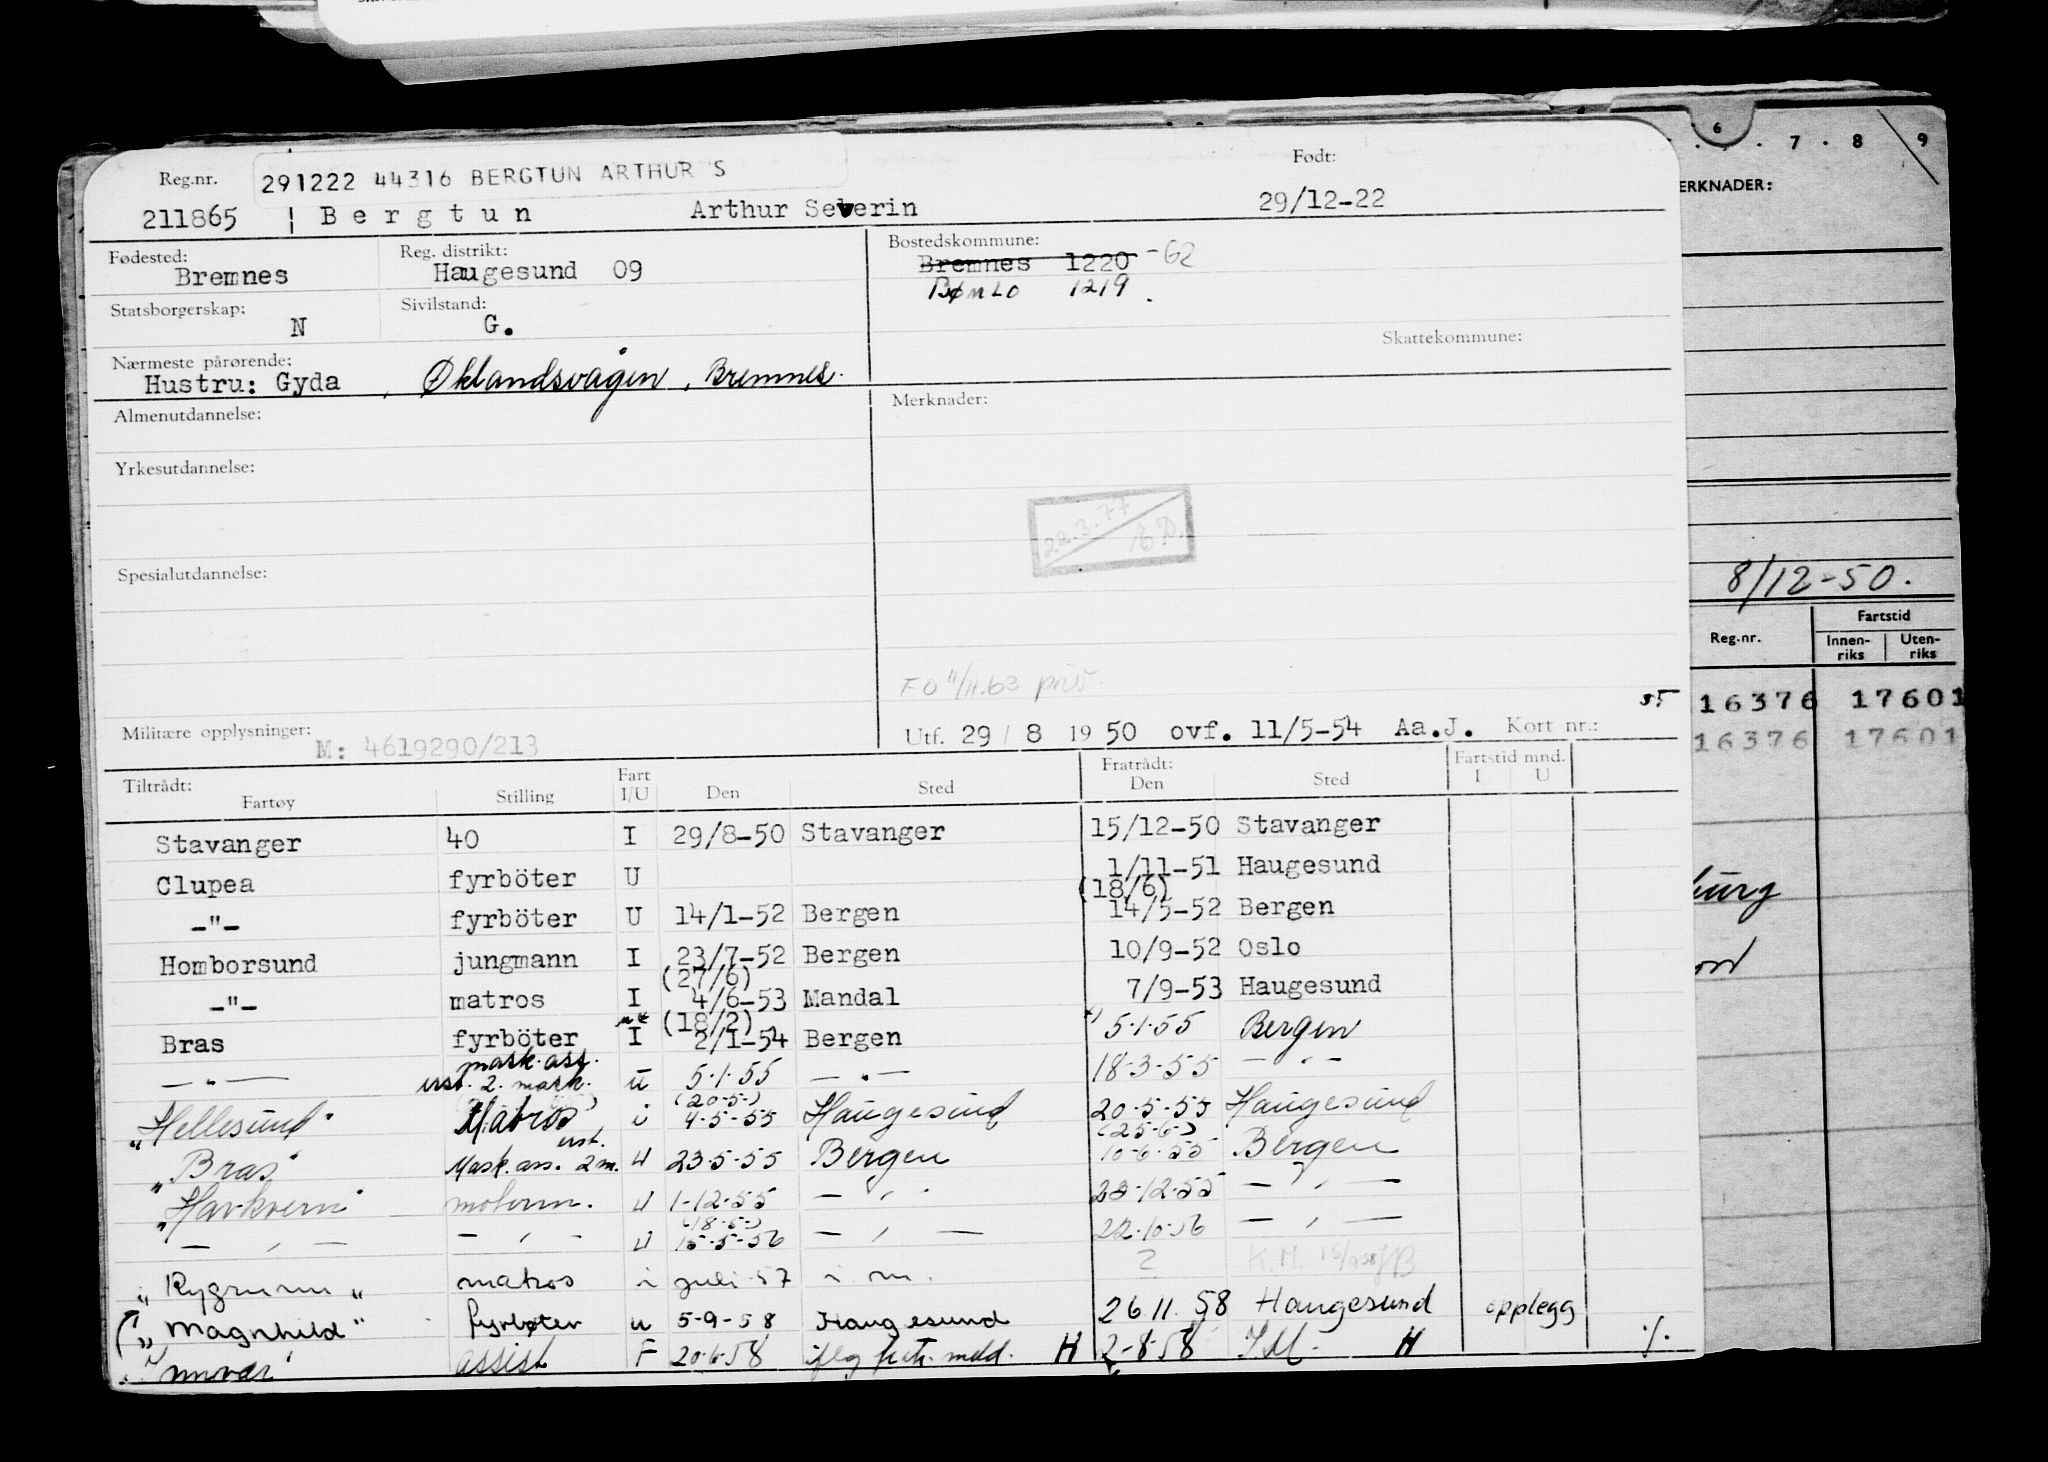 6 . 7 . 8 9
ERKNADER:
Reg.nr. 291222 44316 BERGTUN ARTHUR S Født:
211865 Bergtun Arthur Severin 29/12-22
Fødested: Reg. distrikt: Bostedskommune:
Bremnes Haugesund 09 Bremnes 1220 -62
Bømlo 1219.
Statsborgerskap: Sivilstand:
N G.
Skattekommune:
Nærmeste pårørende:
Hustru: Gyda , Øklandsvågen, Bremnes.
Almenutdannelse: Merknader:
Yrkesutdannelse:
22.3.77
Spesialutdannelse:
8/12-50.
Fartstid
Reg.nr. Innen-riks Uten-riks
FO 11/11.63 priv.
55 16376 17601
16376 17601
Militære opplysninger: M: 4619290/213
Utf. 29 / 8 1950 ovf. 11/5-54 Aa.J. Kort nr.:
Tiltrådt: Fart Fratrådt: Fartstid mnd.
Fartøy Stilling I/U Den Sted Den Sted I U
Stavanger 40 I 29/8-50 Stavanger 15/12-50 Stavanger
Clupea fyrböter U 1/11-51 Haugesund
(18/6)
-"- fyrböter U 14/1-52 Bergen 14/5-52 Bergen
Homborsund jungmann I 23/7-52 Bergen 10/9-52 Oslo
(27/6)
-"- matros I 4/6-53 Mandal 7/9-53 Haugesund
(18/2)
Bras fyrböter I 2/1-54 Bergen 5.1.55 Bergen
mask.ass.
-"- 2. mask. u 5.1.55 -"- 18.3.55 -"-
(20-5-)
"Hellesund" Matros i 4-5-55 Haugesund 20-5-55 Haugesund
(25-6-)
"Bras" Mask.ass. 2 m. u 23-5-55 Bergen 10-6-55 Bergen
"Havkvern" motorm. u 1-12-55 -"- 23-12-55 -"-
(18-5-)
-"- -"- u 15-5-56 -"- 22-10-56 -"-
"Rygrunn" matros i juli-57 i. m. ?
"Magnhild" fyrbøter u 5-9-58 Haugesund 26.11.58 Haugesund opplegg
assist F 20.6.58 iflg H 2-8-58 H